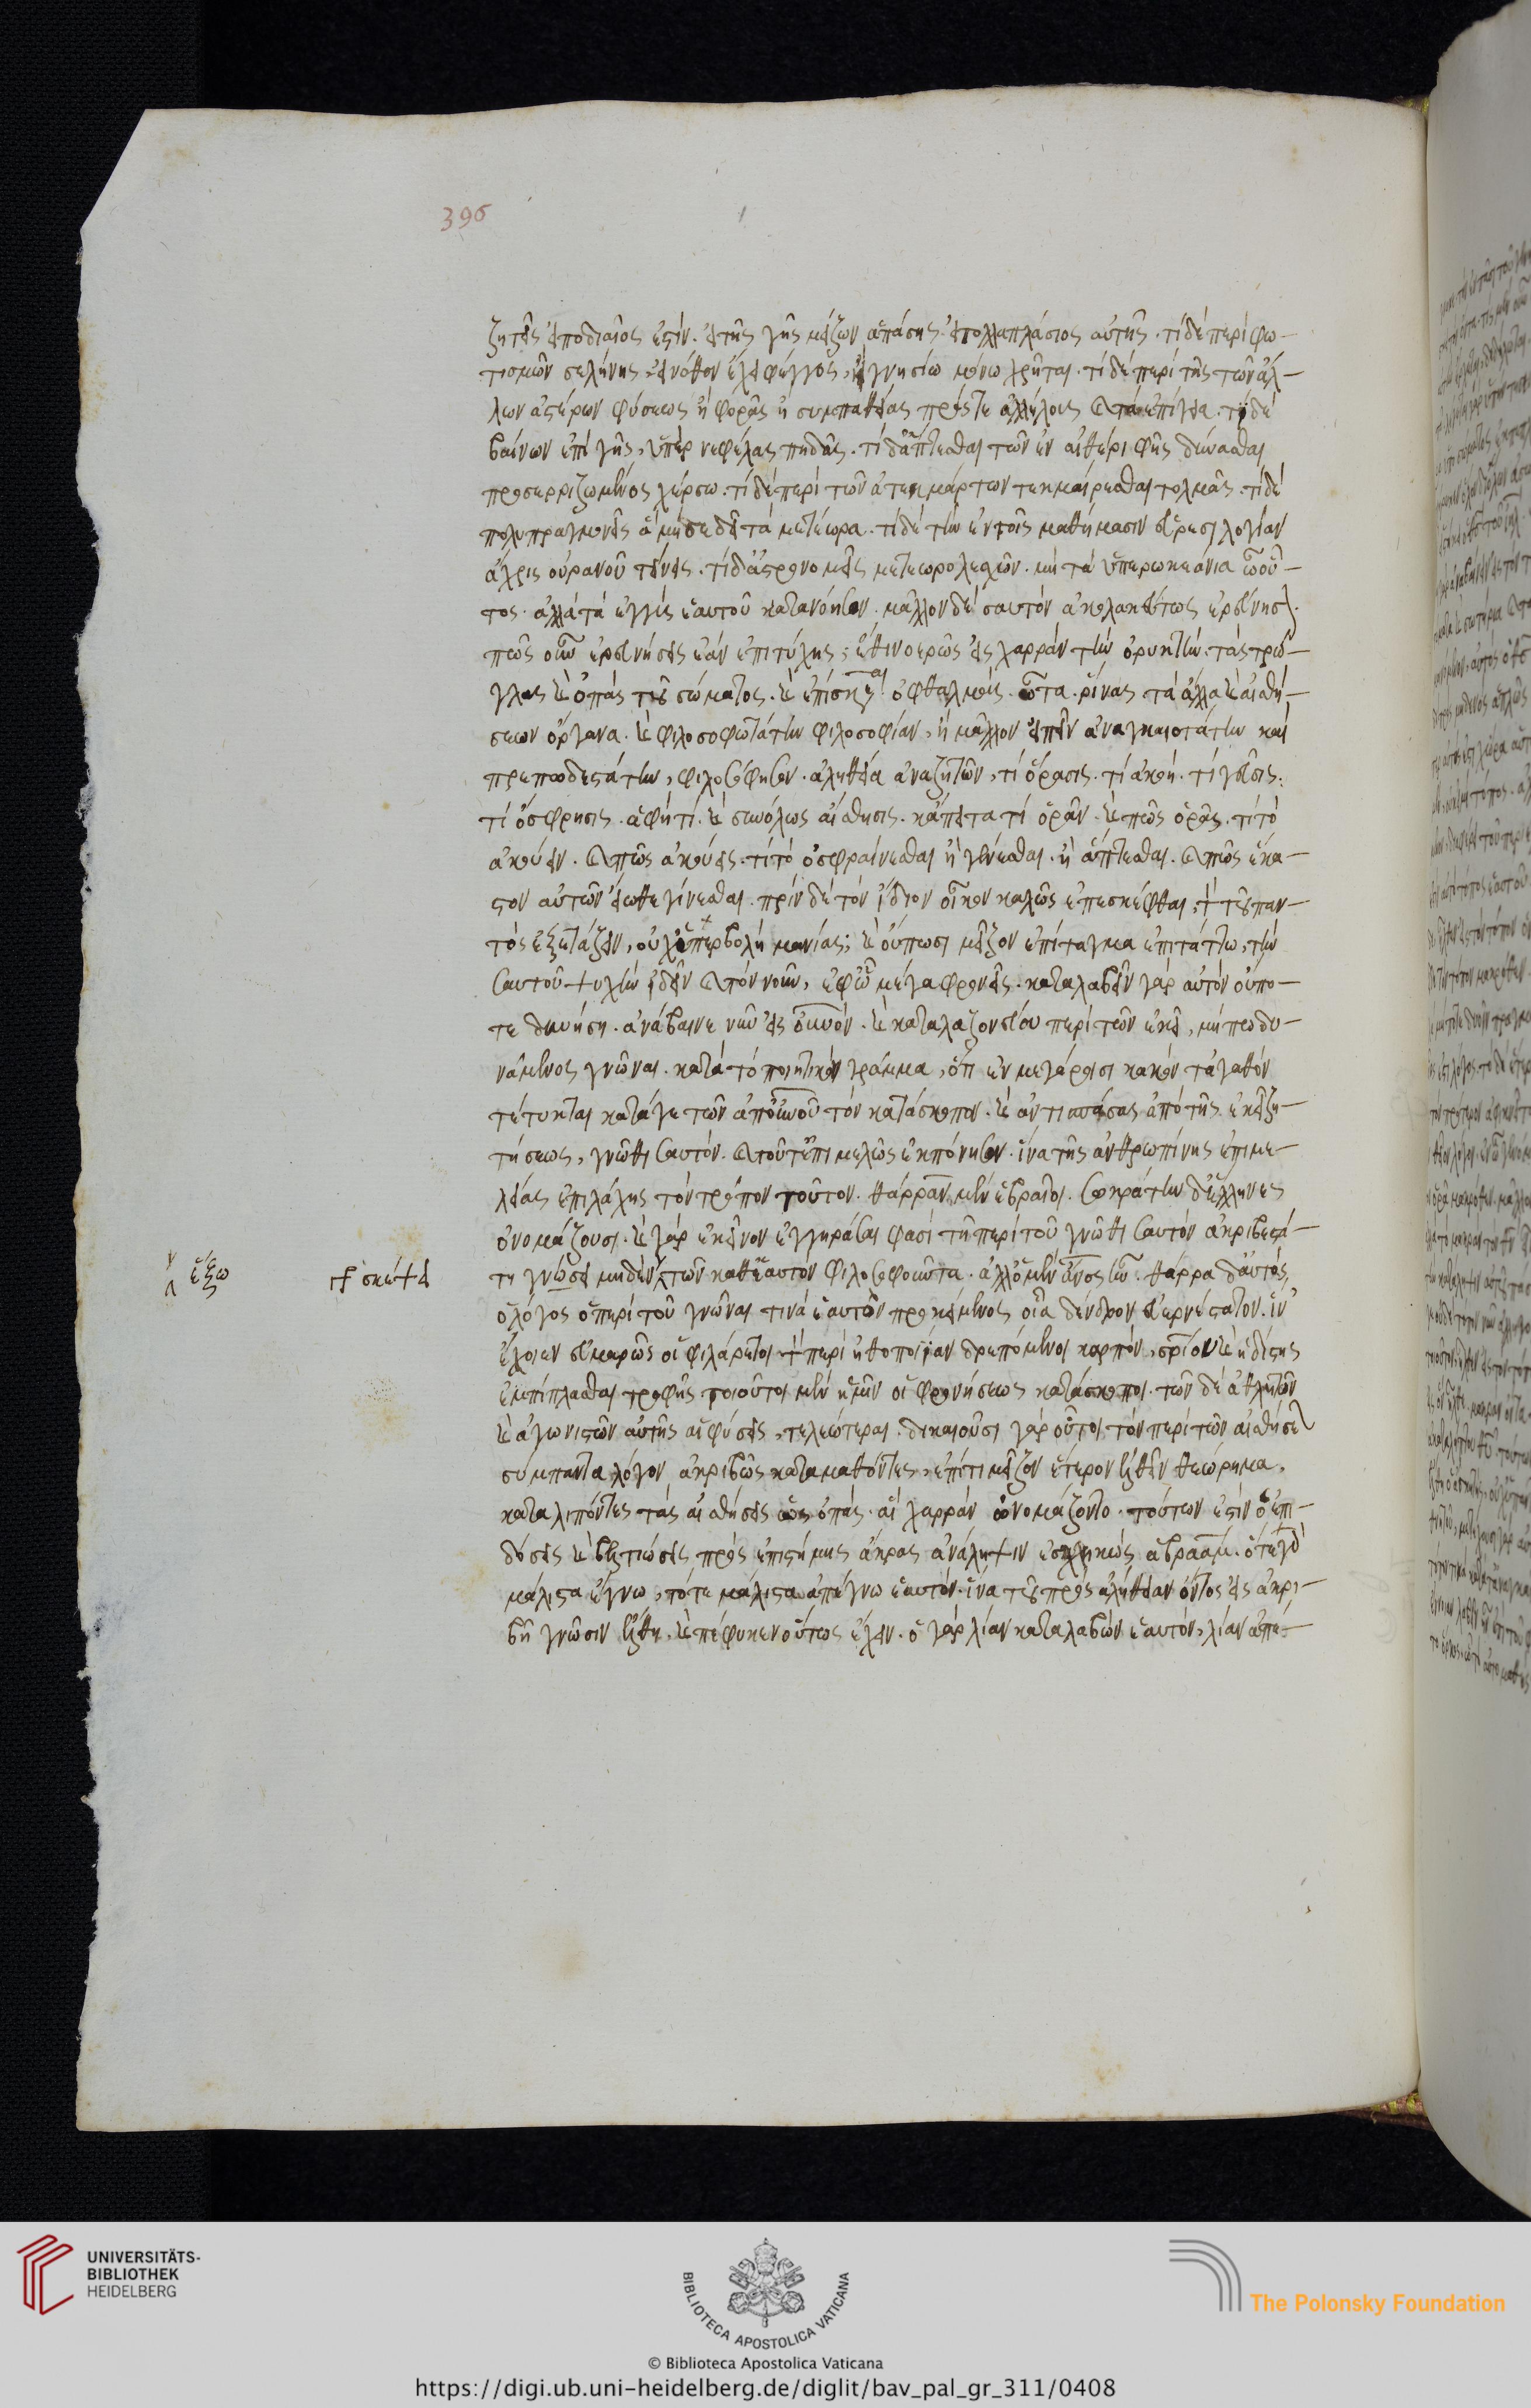 396
ζητεῖς εἰ ποδιαῖος ἐστίν. εἰ τῆς γῆς μείζων ἁπάσης. εἰ πολλαπλάσιος αὐτῆς. τί δὲ περὶ φω-
τισμῶν σελήνης, εἰ νόθον ἔχει φέγγος, εἰ γνησίω μόνω χρῆται. τί δὲ περὶ τῆς τῶν ἀλ-
λων ἀστέρων φύσεως ἢ φορᾶς ἢ συμπαθείας πρός τε ἀλλήλους καὶ τὰ ἐπίγεια. τί δὲ
βαίνων ἐπὶ γῆς, ὑπὲρ νεφέλας πηδᾶς. τί δ' ἅπτεσθαι τῶν ἐν αἰθέρι φῆς δύνασθαι
προσερριζωμένος χέρσω. τί δὲ περὶ τῶν ἀτεκμάρτων τεκμαίρεσθαι τολμᾶς. τί δὲ
πολυπραγμονεῖς ἃ μή σε δεῖ τὰ μετέωρα. τί δὲ τὴν ἐν τοῖς μαθήμασιν εὑρεσιλογίαν
ἄχρις οὐρανοῦ τείνεις. τί δ' ἀστρονομεῖς μετεωρολεσχῶν. μὴ τὰ ὑπερωκεάνια ὦ οὗ-
τος. ἀλλὰ τὰ ἐγγὺς ἑαυτοῦ κατανόησον. μᾶλλον δὲ σαυτὸν ἀκολακεύτως ἐρεύνησον.
πῶς οὖν ἐρευνήσεις ἐὰν ἐπιτύχης; ἴθι νοερῶς εἰς χαρρὰν τὴν ὀρυκτὴν. τὰς τρώ-
γλας καὶ ὀπὰς τοῦ σώματος. καὶ ἐπίσκεψαι ὀφθαλμούς. ὦτα. ῥίνας τὰ ἄλλα καὶ αἰσθή-
σεων ὄργανα. καὶ φιλοσοφωτάτην φιλοσοφίαν, ἢ μᾶλλον εἰπεῖν ἀναγκαιοτάτην καὶ
πρεπωδεστάτην, φιλοσόφησον. ἀληθεία ἀναζητῶν, τί ὅρασις. τί ἀκοή. τί γεῦσις.
τί ὄσφρησις. ἁφή τί. καὶ συνόλως αἴσθησις. κἄπειτα τί ὁρᾶν. καὶ πῶς ὁρᾶς. τί τὸ
ἀκούειν. καὶ πῶς ἀκούεις. τί τὸ ὀσφραίνεσθαι ἢ γεύεσθαι. ἢ ἅπτεσθαι. καὶ πῶς ἕκα-
στον αὐτῶν εἴωθε γίνεσθαι. πρὶν δὲ τὸν ἴδιον οἶκον καλῶς ἐπεσκέφθαι, τὸν τοῦ παν-
τὸς ἐξετάζειν, οὐχ ὑπερβολὴ μανίας; καὶ οὔπω σοι μεῖζον ἐπίταγμα ἐπιτάττω, τὴν
σαυτοῦ ψυχὴν ἰδεῖν καὶ τὸν νοῦν, ἐφ' ὧ μέγα φρονεῖς. καταλαβεῖν γὰρ αὐτὸν οὔπο-
τε δυνήση. ἀνάβαινε νῦν εἰς οὐνόν. καὶ καταλαζονεύου περὶ τῶν ἐκεῖ, μήπω δυ-
νάμενος γνῶναι. κατὰ τὸ ποιητικὸν γράμμα, ὅτι ἐν μεγάροισι κακόν τ' ἀγαθόν
τέτυκται κατάγε τῶν ἀπ' οὐνοῦ τὸν κατάσκοπον. καὶ ἀντισπάσας ἀπὸ τῆς ἐκεῖ ζη-
τήσεως, γνῶθι σαυτόν. καὶ τοῦτ' ἐπιμελῶς ἐκπόνησον. ἵνα τῆς ἀνθρωπίνης ἐπιμε-
λείας ἐπιλάχης τὸν τρόπον τοῦτον. θάρραν μὲν ἑβραῖοι. σωκράτην δ' ἕλληνες
ὀνομάζουσι. καὶ γὰρ ἐκεῖνον ἐγγηρᾶσαι φασὶ τῆ περὶ τοῦ γνῶθι σαυτὸν ἀκριβεστά-
τη γνώσει μηδὲν τῶν καθ' ἑαυτὸν φιλοσοφοῦντα. ἀλλ' ὁ μὲν ἄνος ἦν. θάρρα δ' αὐτὸς
ὁ λόγος ὁ περὶ τοῦ γνῶναι τινὰ ἑαυτὸν προκείμενος οἷα δένδρον εὐερνέστατον. ἵν'
ἔχοιεν εὐμαρῶς οἱ φιλάρετοι τὸν περὶ ἠθοποιίαν δρεπόμενοι καρπόν, σωτηρίου καὶ ἡδίστης
ἐμπίπλασθαι τροφῆς τοιοῦτοι μὲν ἡμῖν οἱ φρονήσεως κατάσκοποι. τῶν δὲ ἀθλητῶν
καὶ ἀγωνιστῶν αὐτῆς αἱ φύσεις, τελεώτεραι. δικαιοῦσι γὰρ οὗτοι τὸν περὶ τῶν αἰσθήσεων
σύμπαντα λόγον ἀκριβῶς καταμαθόντες, ἐπί τι μεῖζον ἕτερον ἐλθεῖν θεώρημα,
καταλιπόντες τὰς αἰσθήσεις ὡς ὀπάς. αἳ χαρρὰν ὠνομάζοντο. τούτων ἐστὶν ὁ ἐπι-
δόσεις καὶ βελτιώσεις πρὸς ἐπιστήμης ἄκρας ἀνάληψιν ἐσχηκὼς ἀβραάμ. ὅτε γὰρ
μάλιστα ἔγνω, τότε μάλιστα ἀπέγνω ἑαυτόν. ἵνα τοῦ πρὸς ἀλήθειαν ὄντος εἰς ἀκρι-
βῆ γνῶσιν ἔλθη. καὶ πέφυκεν οὕτως ἔχειν. ὁ γὰρ λίαν καταλαβὼν ἑαυτόν, λίαν ἀπέ-
ἔξω
σκέψει
UNIVERSITÄTS-
BIBLIOTHEK
HEIDELBERG
BIBLIOTECA APOSTOLICA VATICANA
The Polonsky Foundation
© Biblioteca Apostolica Vaticana
https://digi.ub.uni-heidelberg.de/diglit/bav_pal_gr_311/0408